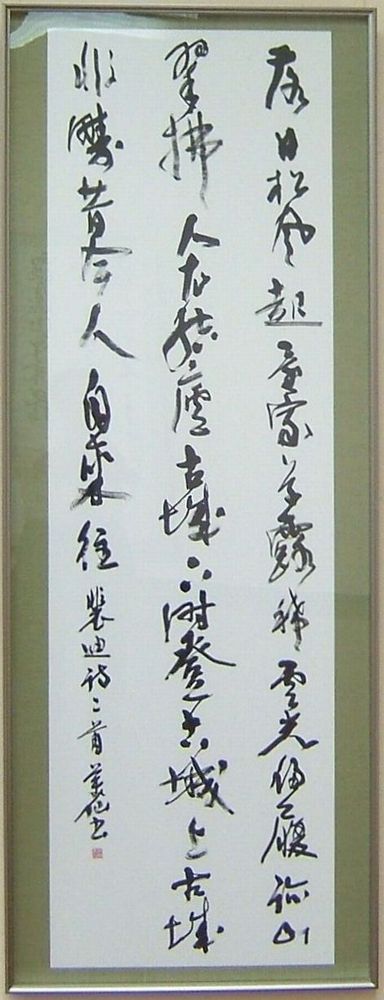 落日松風起還家草露晞雲光侵履跡山
翠拂人衣結廬古城下時登古城上古城
非疇昔今人自來往裴迪詩二首